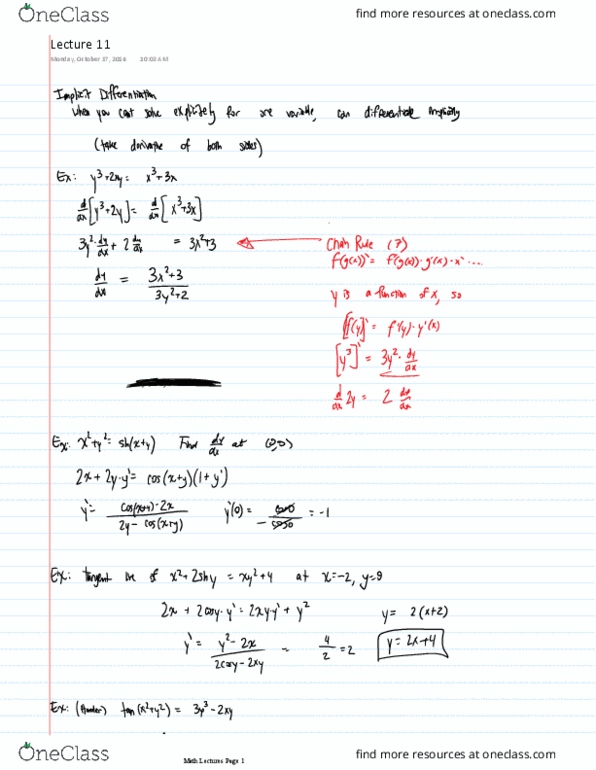 OneClass
find more resources at oneclass.com
Lecture 11
Monday, October 17, 2016 10:02 AM
Implicit Differentiation
when you cant solve explicitely for one variable, can differentiate implicitly
(take derivative of both sides)
Ex: y³+2xy = x³+3x
d/dx[y³+2y] = d/dx[x³+3x]
3y²·dy/dx + 2 dy/dx = 3x²+3
dy/dx = (3x²+3)/(3y²+2)
Chain Rule (?)
f(g(x))' = f'(g(x))·g'(x)·x' ....
y is a function of x, so
[f(y)]' = f'(y)·y'(x)
[y³]' = 3y²·dy/dx
d/dx 2y = 2 dy/dx
Ex: x²+y² = sin(x+y) Find dy/dx at (0,0)
2x + 2y·y' = cos(x+y)(1+y')
y' = (cos(x+y)-2x)/(2y-cos(x+y)) y'(0) = cos0/-cos0 = -1
Ex: tangent line of x²+2siny = xy²+4 at x=-2, y=0
2x + 2cosy·y' = 2xy·y' + y²
y= 2(x+2)
y' = (y²-2x)/(2cosy-2xy) = 4/2 = 2
y=2x+4
Ex: (Harder) tan(x²+y²) = 3y³-2xy
OneClass
find more resources at oneclass.com
Math Lectures Page 1